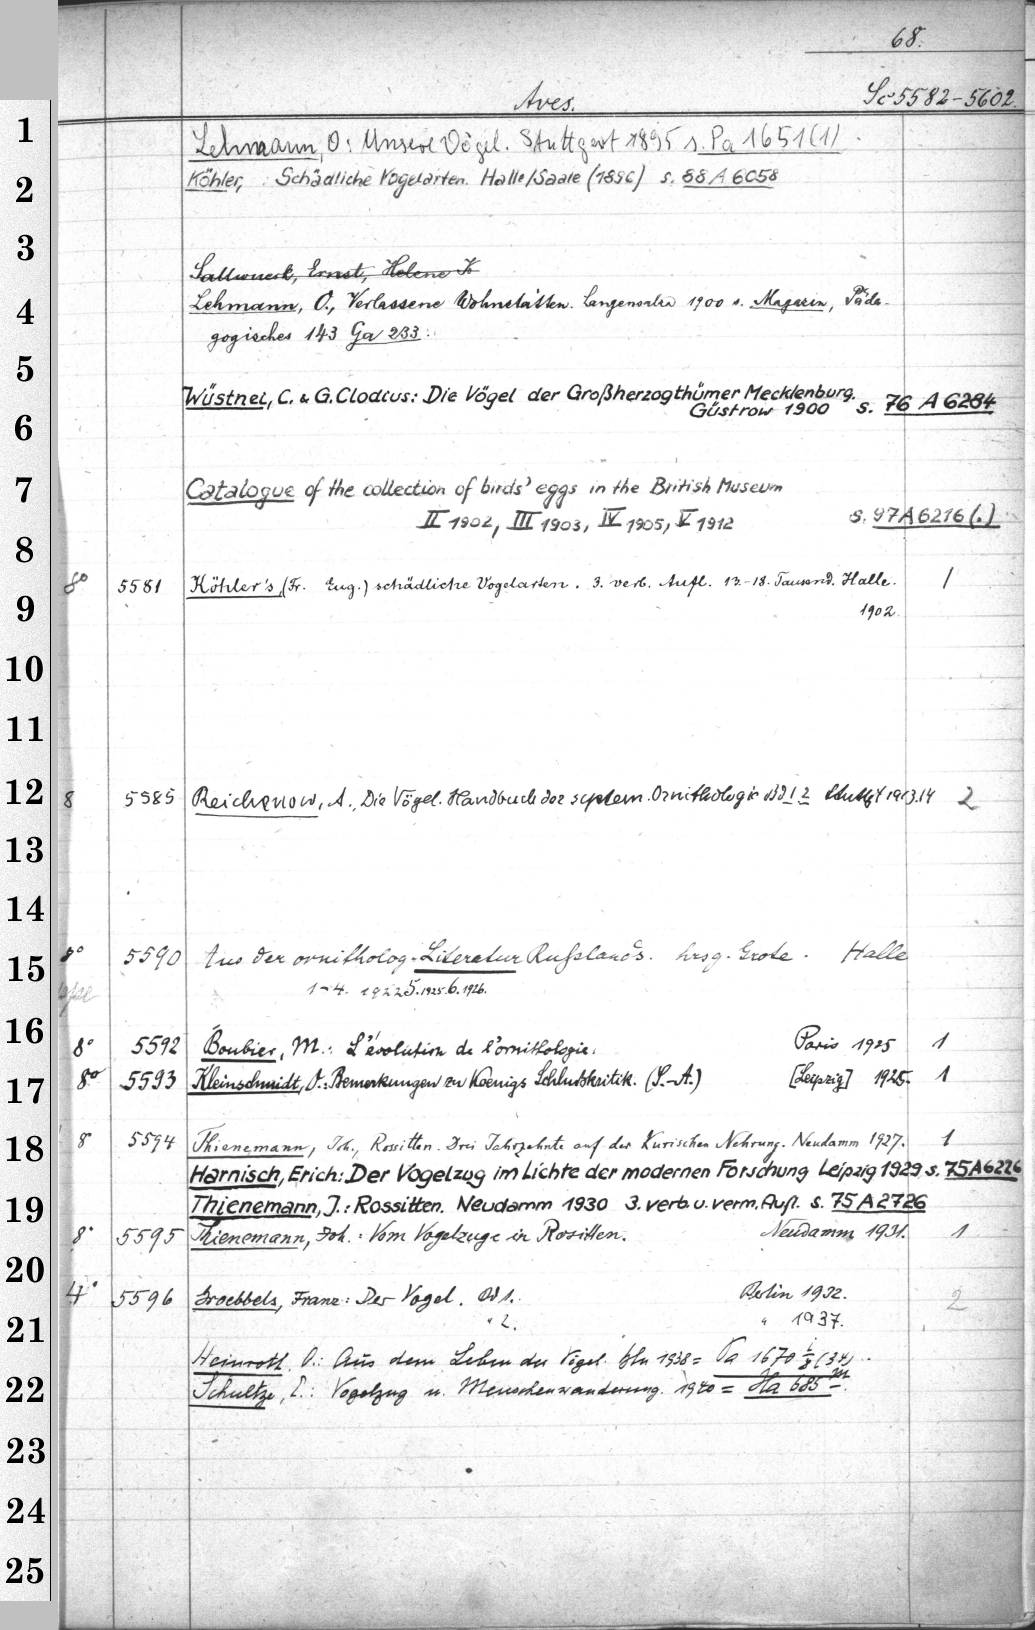 68.
Aves.
Sc 5582-5602.
1
Lehmann, O: Unsere Vögel. Stuttgart 1895 s. Pa 1651(1)
2
Köhler, : Schädliche Vogelarten. Halle/Saale (1896) s. 88 A 6058
3
Sallwuerk, Ernst, Helene K
4
Lehmann, O., Verlassene Wohnstätten. Langensalza 1900 s. Magazin, Päda-
gogisches 143 Ga 233.
5
Wüstnei, C. & G. Clodius: Die Vögel der Großherzogthümer Mecklenburg.
Güstrow 1900 s. 76 A 6284
6
7
Catalogue of the collection of birds' eggs in the British Museum
II 1902, III 1903, IV 1905, V 1912 s. 97 A 6216 (.)
8
8° 5581 Köhler's, (Fr. Eug.) schädliche Vogelarten. 3. verb. Aufl. 13.-18. Tausend. Halle. 1
9
1902.
10
11
12
8 5585 Reichenow, A., Die Vögel. Handbuch der system. Ornithologie Bd 1 2 Stuttg 1913.14 2
13
14
15
8° 5590 Aus der ornitholog. Literatur Rußlands. hrsg. Grote. Halle
1-4. 1922 5.1925.6.1926.
16
8° 5592 Boubier, M.: L'évolution de l'ornithologie. Paris 1925 1
17
8° 5593 Kleinschmidt, O.: Bemerkungen zu Koenigs Schlußkritik. (S.-A.) [Leipzig] 1925. 1
18
8 5594 Thienemann, Joh., Rossitten. Drei Jahrzehnte auf der Kurischen Nehrung. Neudamm 1927. 1
Harnisch, Erich: Der Vogelzug im Lichte der modernen Forschung Leipzig 1929 s. 75 A 6226
19
Thienemann, J.: Rossitten. Neudamm 1930 3. verb. u. verm. Aufl. s. 75 A 2726
8° 5595 Thienemann, Joh.: Vom Vogelzuge in Rositten. Neudamm 1931. 1
20
4° 5596 Groebbels, Franz: Der Vogel. Bd 1. Berlin 1932. 2
21
" 2. " 1937.
22
Heinroth, O.: Aus dem Leben der Vögel. Bln 1938 = Pa 1670 (34)
Schultze, E.: Vogelzug u. Menschenwanderung. 1940 = Ha 685
23
24
25